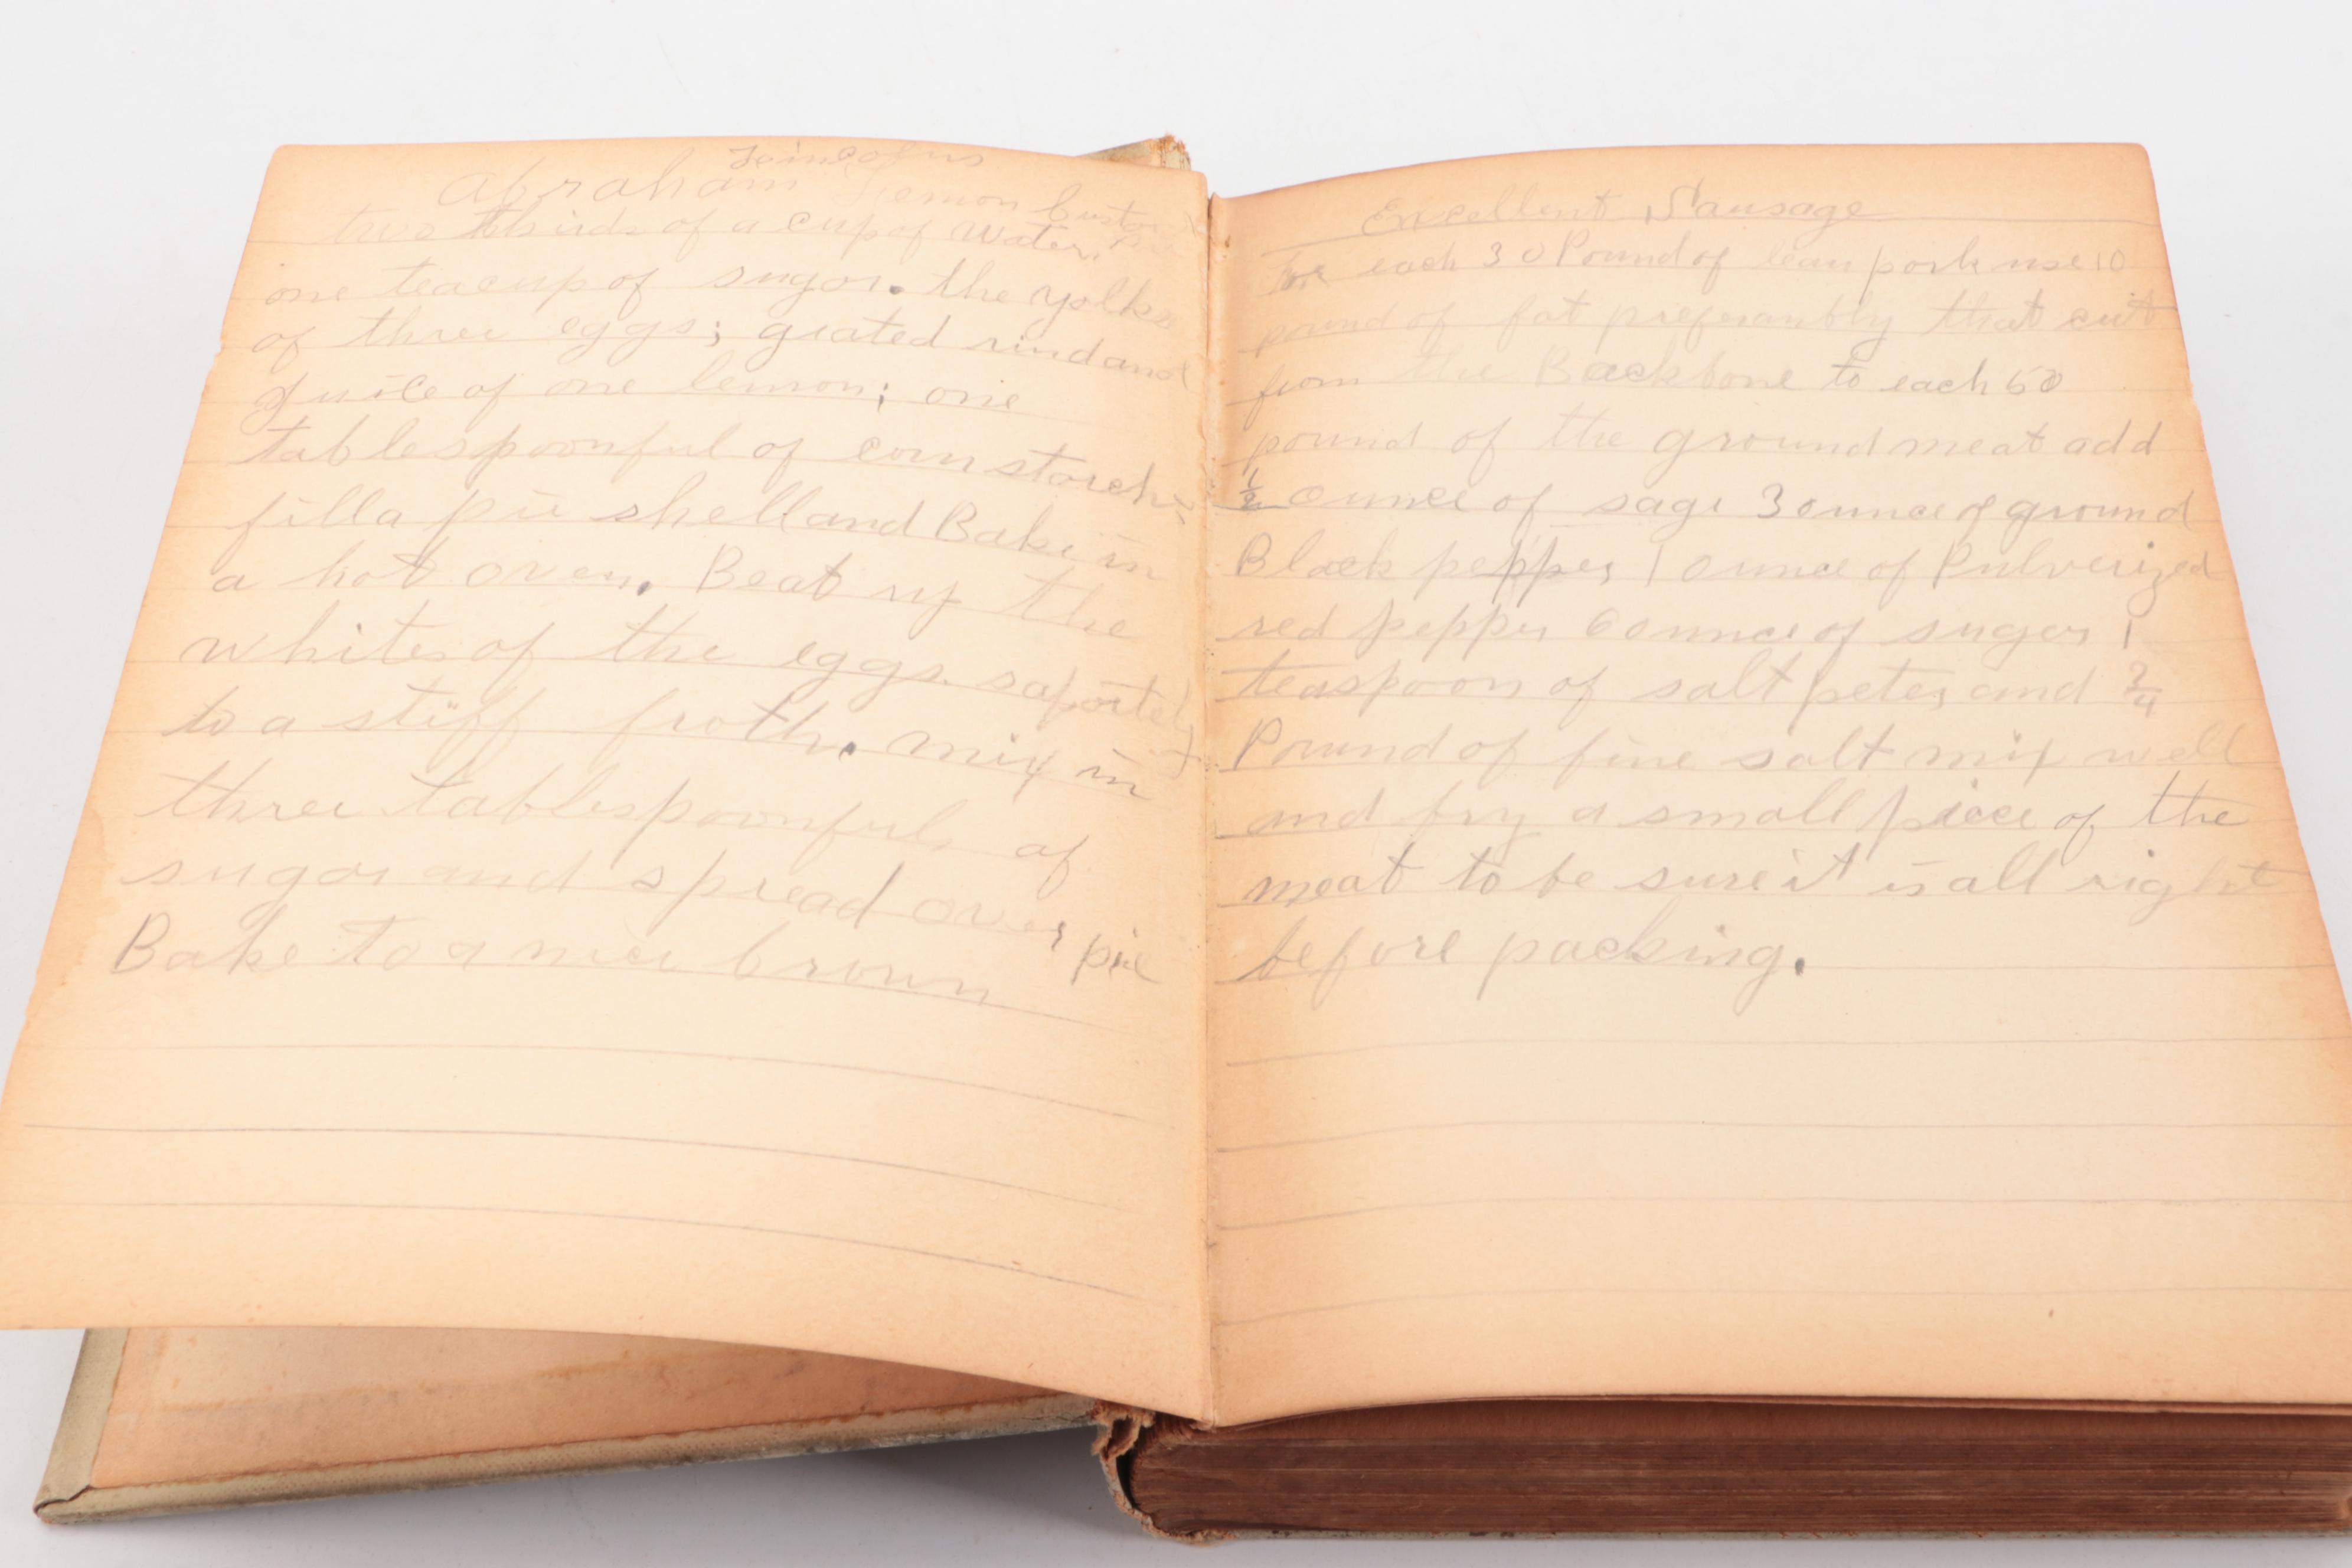 Lincolns
Abraham Lemon Custard
pie
two thirds of a cup of water,
one teacup of sugar. the yolks
of three eggs; grated rind and
juice of one lemon; one
tablespoonful of corn starch;
fill a pie shell and Bake in
a hot oven. Beat up the
whites of the eggs sapartely
to a stiff froth. mix in
three tablespoonfuls of
sugar and spread over pie
Bake to a nice brown
Excellent Sausage
For each 30 Pound of lean pork use 10
pound of fat preferanbly that cut
from the Backbone to each 50
pound of the ground meat add
1/2 ounce of sage 3 ounce of ground
Black pepper 1 ounce of Pulverized
red pepper 6 ounce of sugar 1
teaspoon of salt peter and 3/4
Pound of fine salt mix well
and fry a small piece of the
meat to be sure it is all right
before packing.